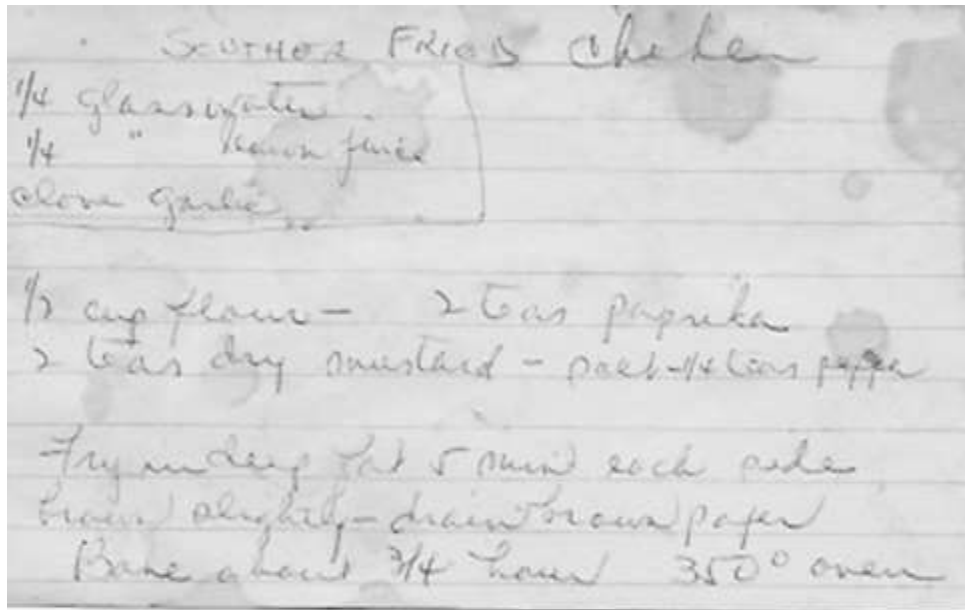 SOUTHER FRIED Chicken
1/4 glass water.
1/4 " lemon juice
clove garlic
1/2 cup flour - 2 teas paprika
2 teas dry mustard - salt - 1/4 teas pepper
Fry in deep fat 5 min each side
brown slightly - drain brown paper
Bake about 3/4 hour 350° oven